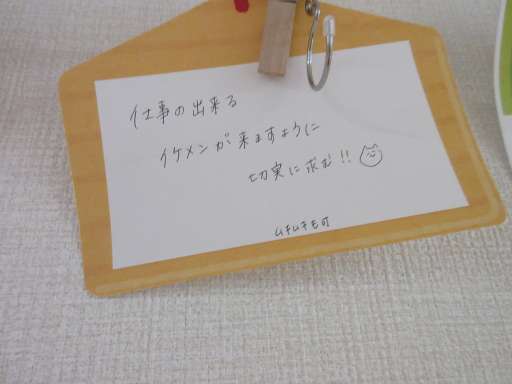 仕事の出来る
イケメンが来ますように
切実に求む!!
ムキムキも可